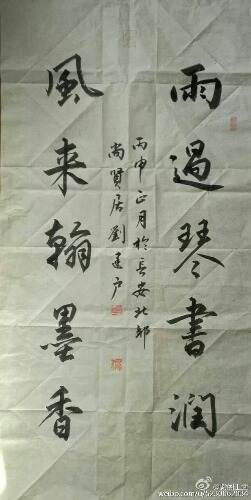 雨過琴書潤
風来翰墨香
丙申正月於長安北郊
尚賢居劉建户